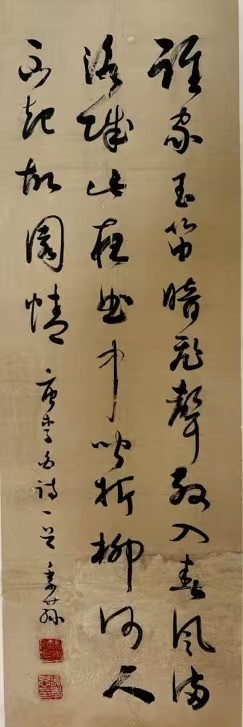 誰家玉笛暗飛聲散入春風滿
洛城此夜曲中聞折柳何人
不起故園情
唐李白詩一首